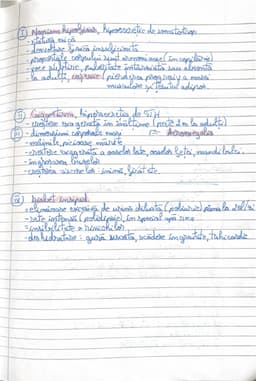 I) Nanism hipofizar, hiposecreție de somatotrop
- statură mică
- dezvoltare fizică insuficientă
- proporțiile corpului sunt armonioase (un copil mic)
- voce subțire, pubertate întârziată sau absentă
- la adulți, (pierderea progresivă a masei
musculare și țesutul adipos
II) Gigantismul, hipersecreția de STH
- creștere exagerată în înălțime (peste 2 m la adulți)
III) dimensiuni corporale mari Acromegalia
- mâinile, picioare mărite
- creștere exagerată a oaselor late, oaselor feței, mandibulei
- îngroșarea buzelor
- creșterea viscerelor: inimă, ficat etc.
IV) Diabet insipid
- eliminare excesivă de urină diluată (poliurie) până la
- sete intensă (polidipsie), în special apă rece
- a rinichilor
- deshidratare: gură uscată, scădere în greutate, tahicardie